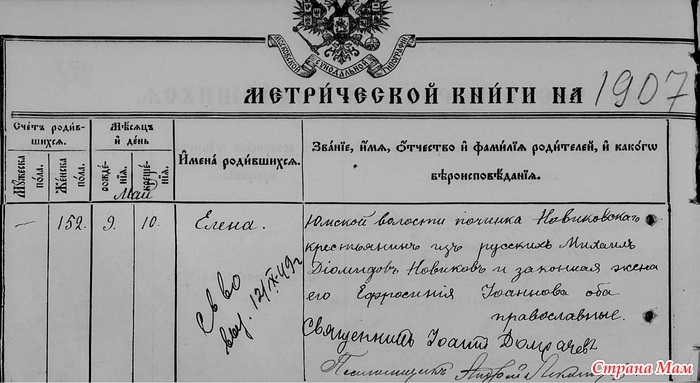 МОСКОВСКОЙ СѴНОДАЛЬНОЙ ТИПОГРАФІИ
МЕТРИ́ЧЕСКОЙ КНИ́ГИ НА 1907
Сче́тъ роди́в-
шихсѧ.
Мꙋ́жеска по́ла.
Же́нска по́ла.
Мѣ́сѧцъ
и҆ де́нь
рожде́-
нїѧ.
креще́-
нїѧ.
Май
И҆мена̀ роди́вшихсѧ.
Зва́нїе, и҆́мѧ, ѻ҆́тчество и҆ фами́лїѧ роди́телей, и҆ како́гѡ
вѣроисповѣ́данїѧ.
— 152. 9. 10. Елена.
Св во
выд. 12/IX-49г
Юмской волости починка Новиковскаго
крестьянинъ изъ русскихъ Михаилъ
Діомидовъ Новиковъ и законная жена
его Ефросинія Іоаннова оба
православные.
Священникъ Іоаннъ Домрачевъ
Псаломщикъ
Страна Мам